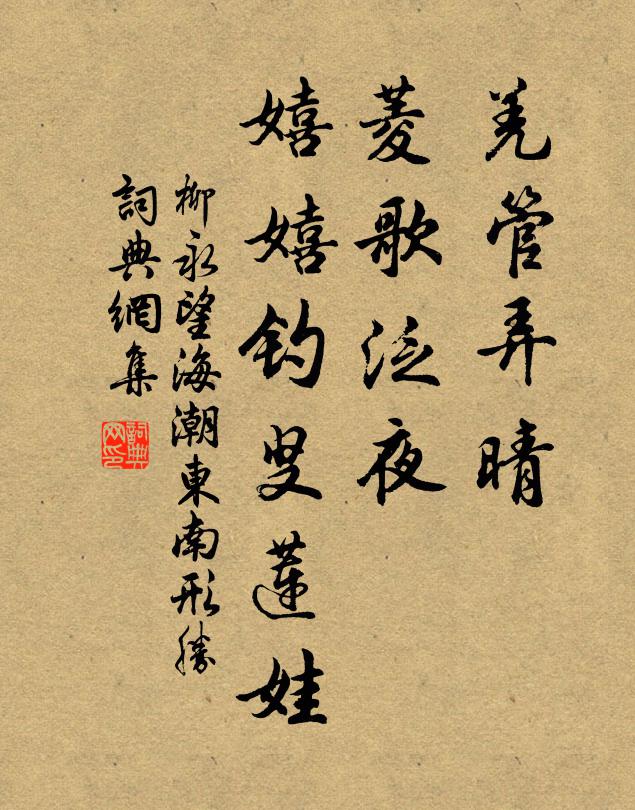 羌管弄晴
菱歌泛夜
嬉嬉釣叟蓮娃
柳永望海潮東南形勝
詞典網集
詞典
网印